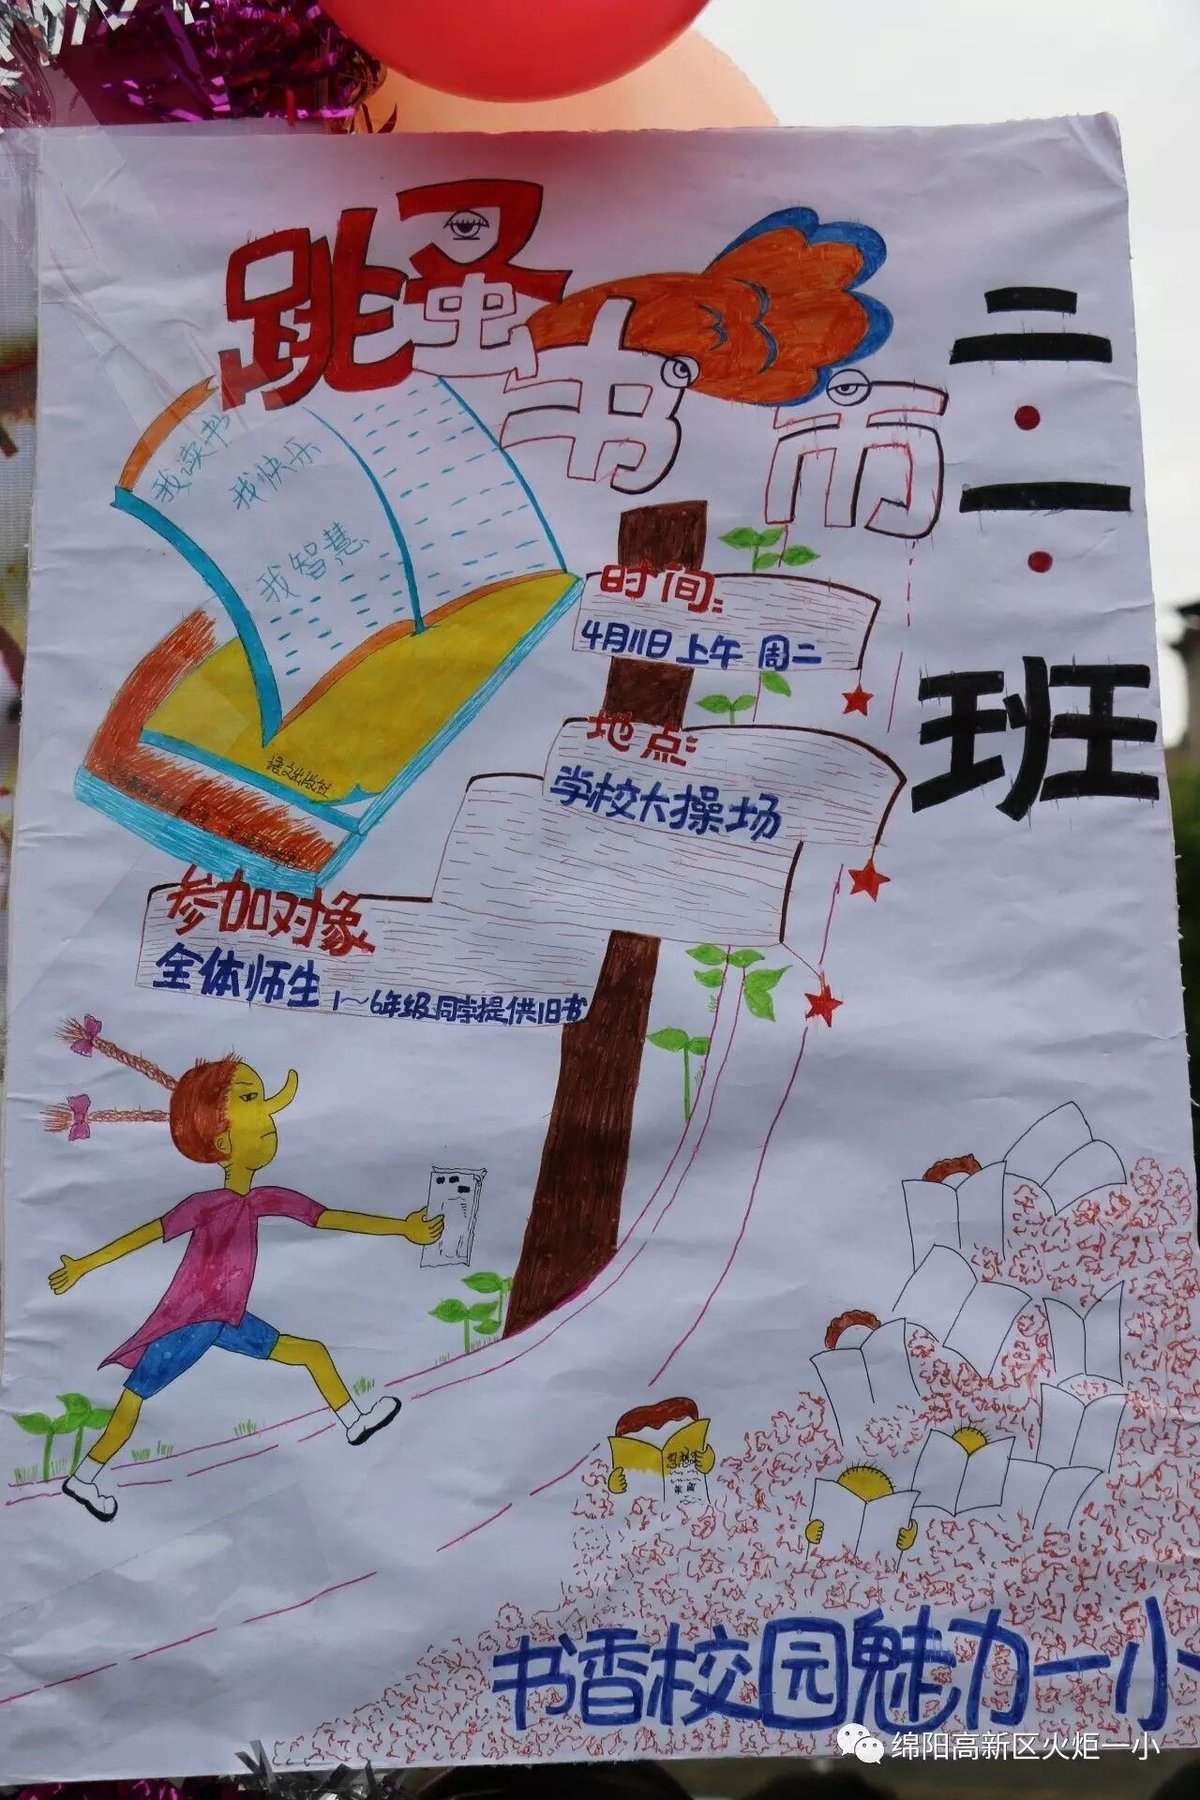 跳蚤书市
二·一·班
我读书
我快乐
我智慧
语文出版社
时间:
4月11日上午 周二
地点:
学校大操场
参加对象
全体师生 1~6年级同学提供旧书
书香校园魅力一小
绵阳高新区火炬一小